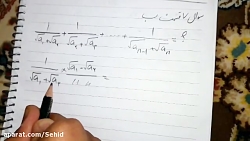 سوال ۷ قسمت ب
1/(√a₁+√a₂) + 1/(√a₂+√a₃) + ... + 1/(√aₙ₋₁+√aₙ) = ?
1/(√a₁+√a₂) × (√a₁-√a₂)/(" ") =
aparat.com/Sehid